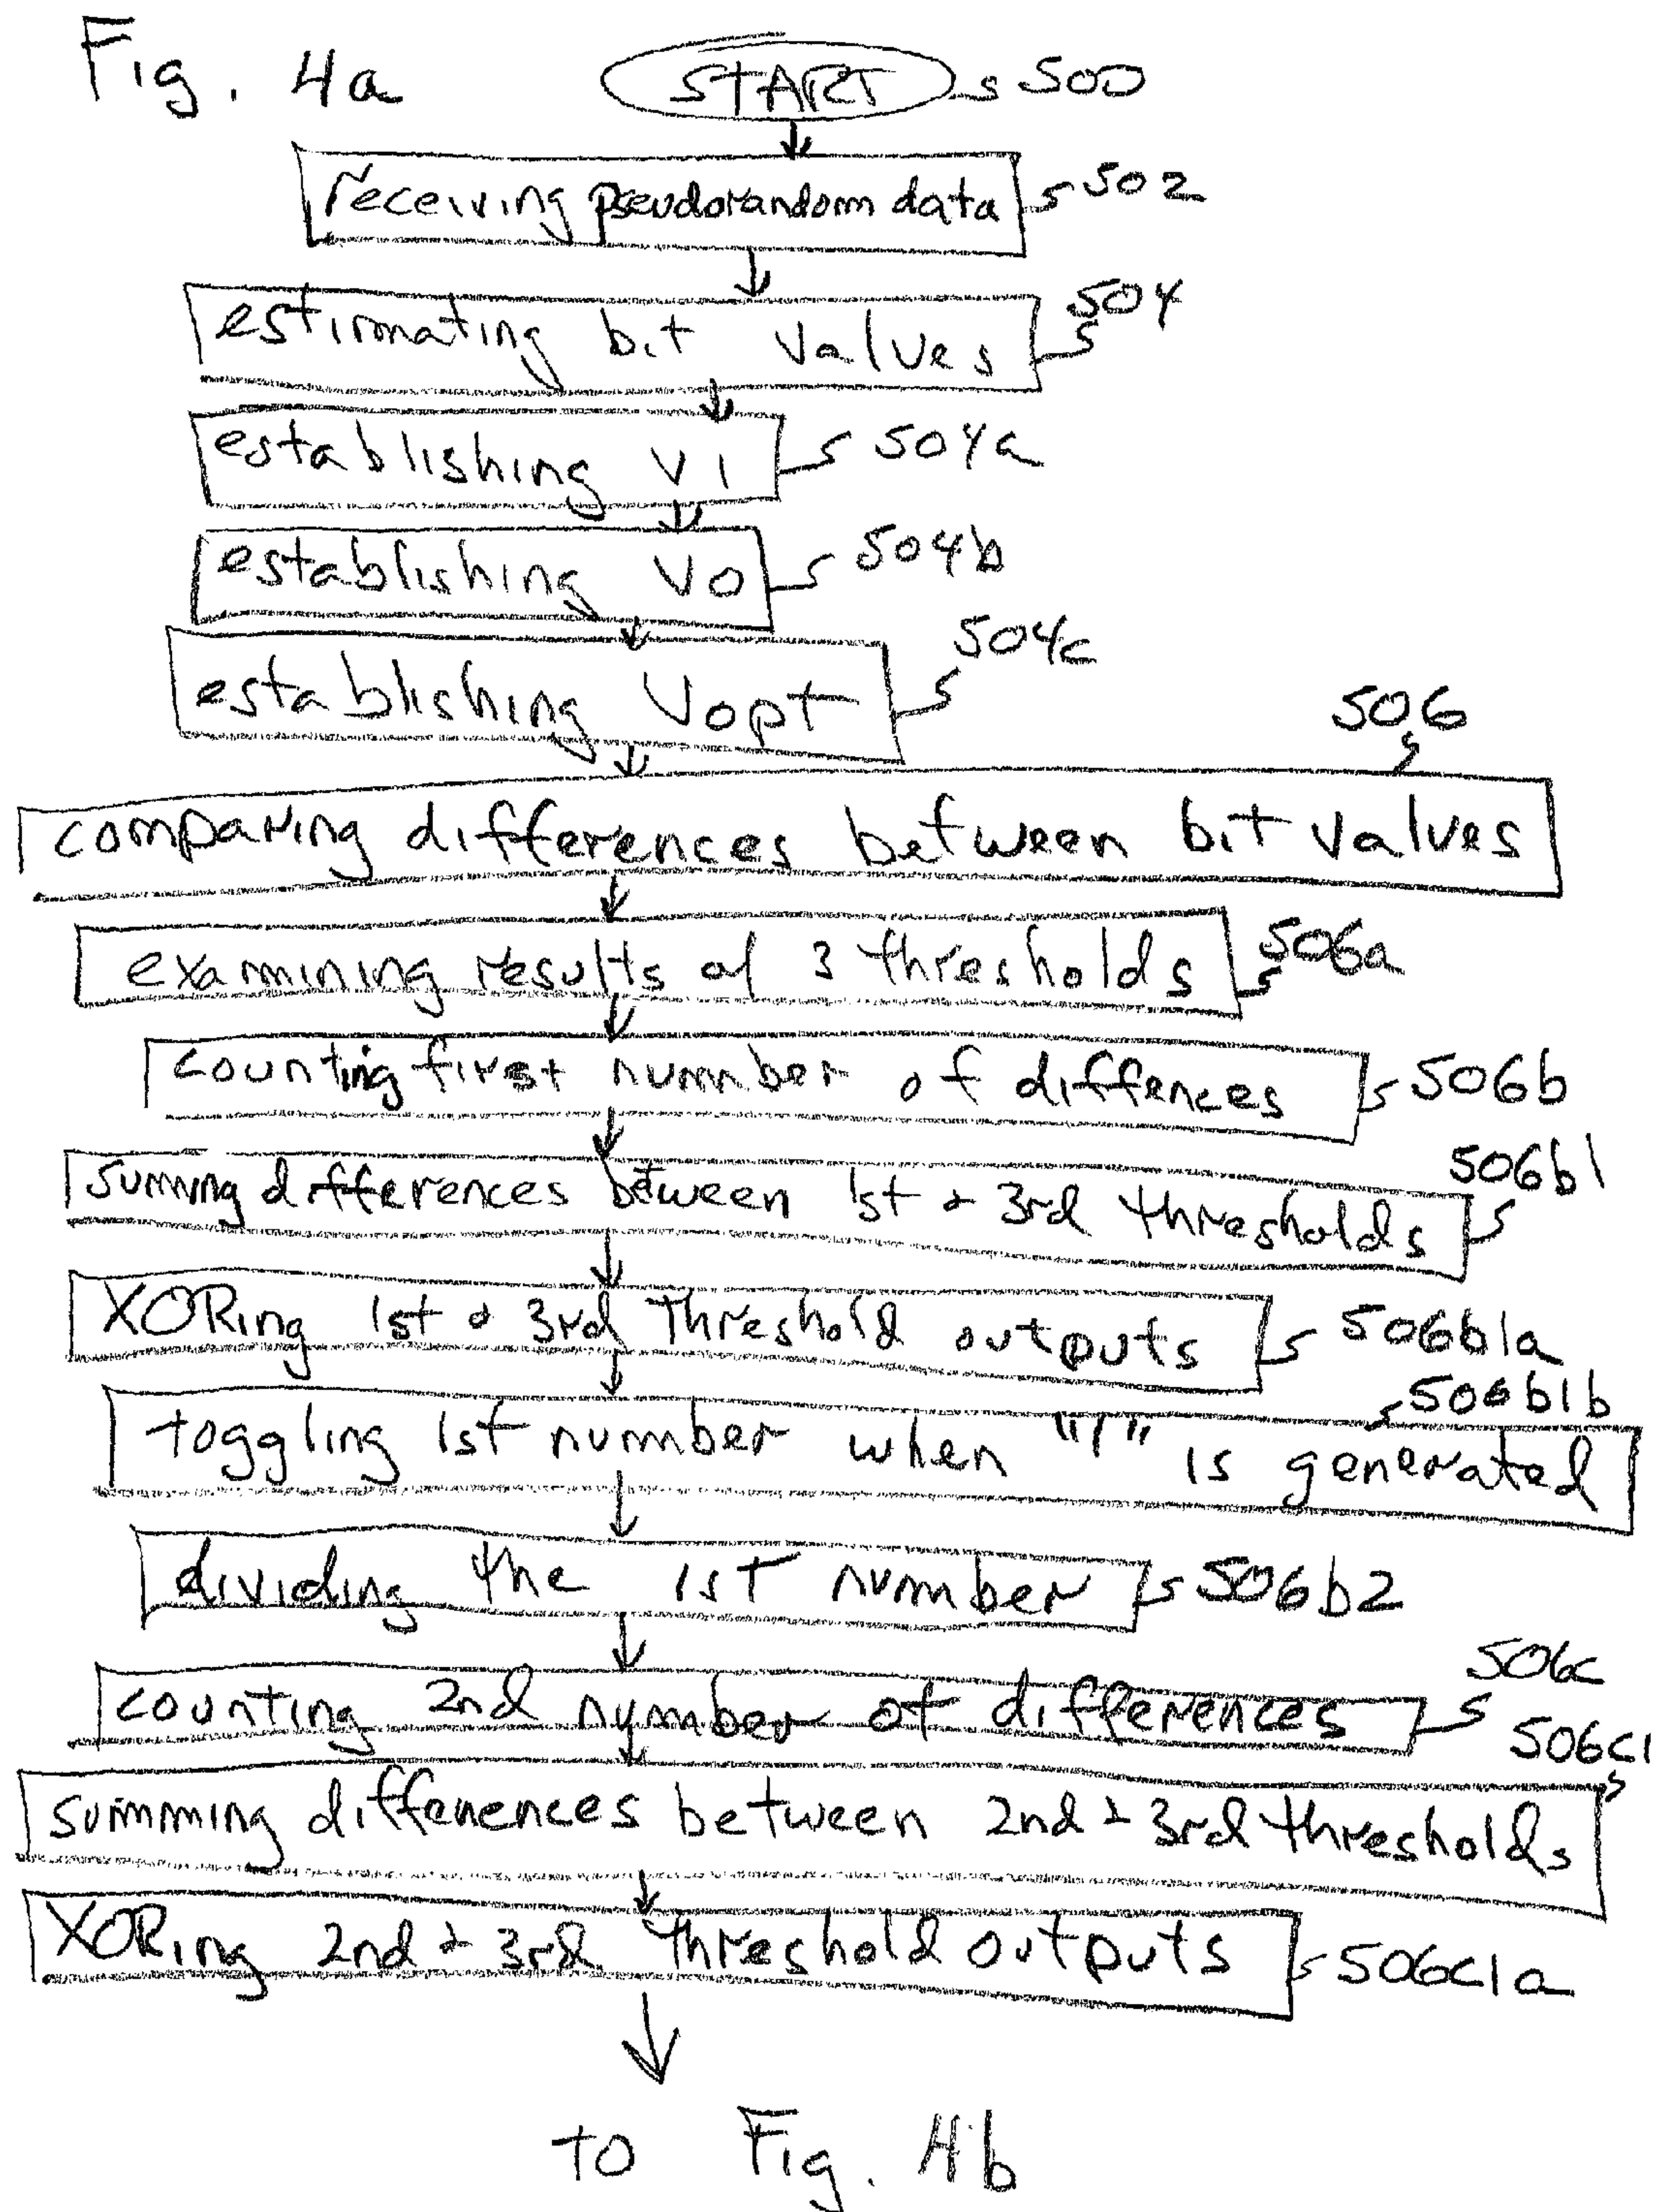 Fig. 4a
START 500
receiving pseudorandom data 502
estimating bit values 504
establishing V1 504a
establishing V0 504b
establishing Vopt 504c
506
comparing differences between bit values
examining results of 3 thresholds 506a
counting first number of diffences 506b
suming differences between 1st & 3rd thresholds 506b1
XORing 1st & 3rd threshold outputs 506b1a
506b1b
toggling 1st number when "1" is generated
dividing the 1st number 506b2
counting 2nd number of differences 506c
506c1
summing differences between 2nd & 3rd thresholds
XORing 2nd & 3rd threshold outputs 506c1a
to Fig. 4b